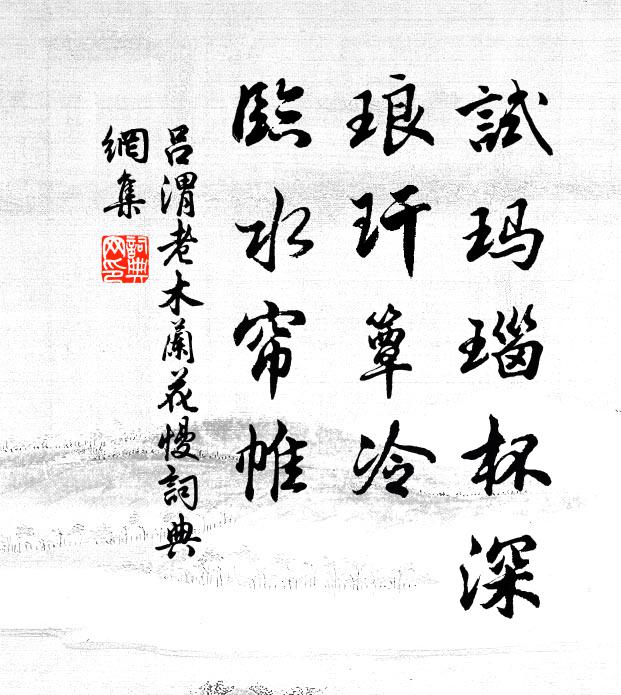 試玛瑙杯深
琅玕簟冷
臨水帘帷
呂渭老木蘭花慢詞典
網集
詞典
网印